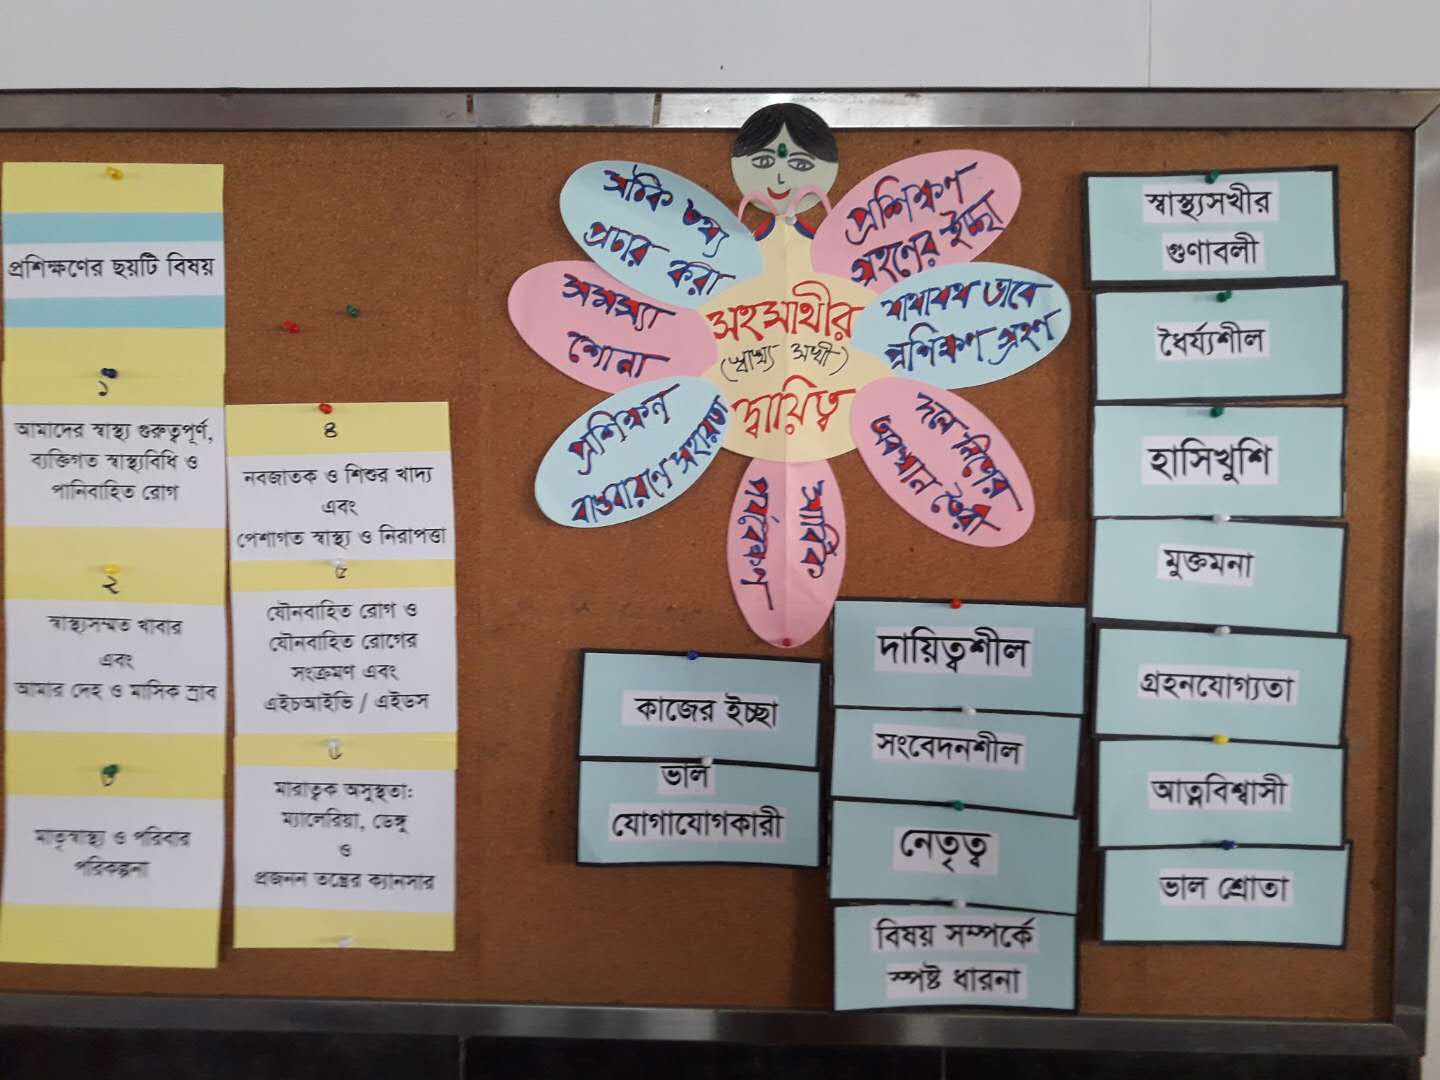 প্রশিক্ষণের ছয়টি বিষয়
১
আমাদের স্বাস্থ্য গুরুত্বপূর্ণ,
ব্যক্তিগত স্বাস্থ্যবিধি ও
পানিবাহিত রোগ
২
স্বাস্থ্যসম্মত খাবার
এবং
আমার দেহ ও মাসিক স্রাব
৩
মাতৃস্বাস্থ্য ও পরিবার
পরিকল্পনা
৪
নবজাতক ও শিশুর খাদ্য
এবং
পেশাগত স্বাস্থ্য ও নিরাপত্তা
৫
যৌনবাহিত রোগ ও
যৌনবাহিত রোগের
সংক্রমণ এবং
এইচআইভি / এইডস
মারাত্বক অসুস্থতা:
ম্যালেরিয়া, ডেঙ্গু
ও
প্রজনন তন্ত্রের ক্যানসার
সঠিক তথ্য
প্রচার করা
সমস্যা
শোনা
প্রশিক্ষন
সহায়তা
প্রশিক্ষণ
গ্রহণের ইচ্ছা
যথাযথ ভাবে
প্রশিক্ষণ গ্রহণ
দলে নিজের
অবস্থান তৈরী
সার্বিক
পর্যবেক্ষণ
সহসাথীর
(স্বাস্থ্য সখী)
দ্বায়িত্ব
কাজের ইচ্ছা
ভাল
যোগাযোগকারী
দায়িত্বশীল
সংবেদনশীল
নেতৃত্ব
বিষয় সম্পর্কে
স্পষ্ট ধারনা
স্বাস্থ্যসখীর
গুণাবলী
ধৈর্য্যশীল
হাসিখুশি
মুক্তমনা
গ্রহনযোগ্যতা
আত্নবিশ্বাসী
ভাল শ্রোতা